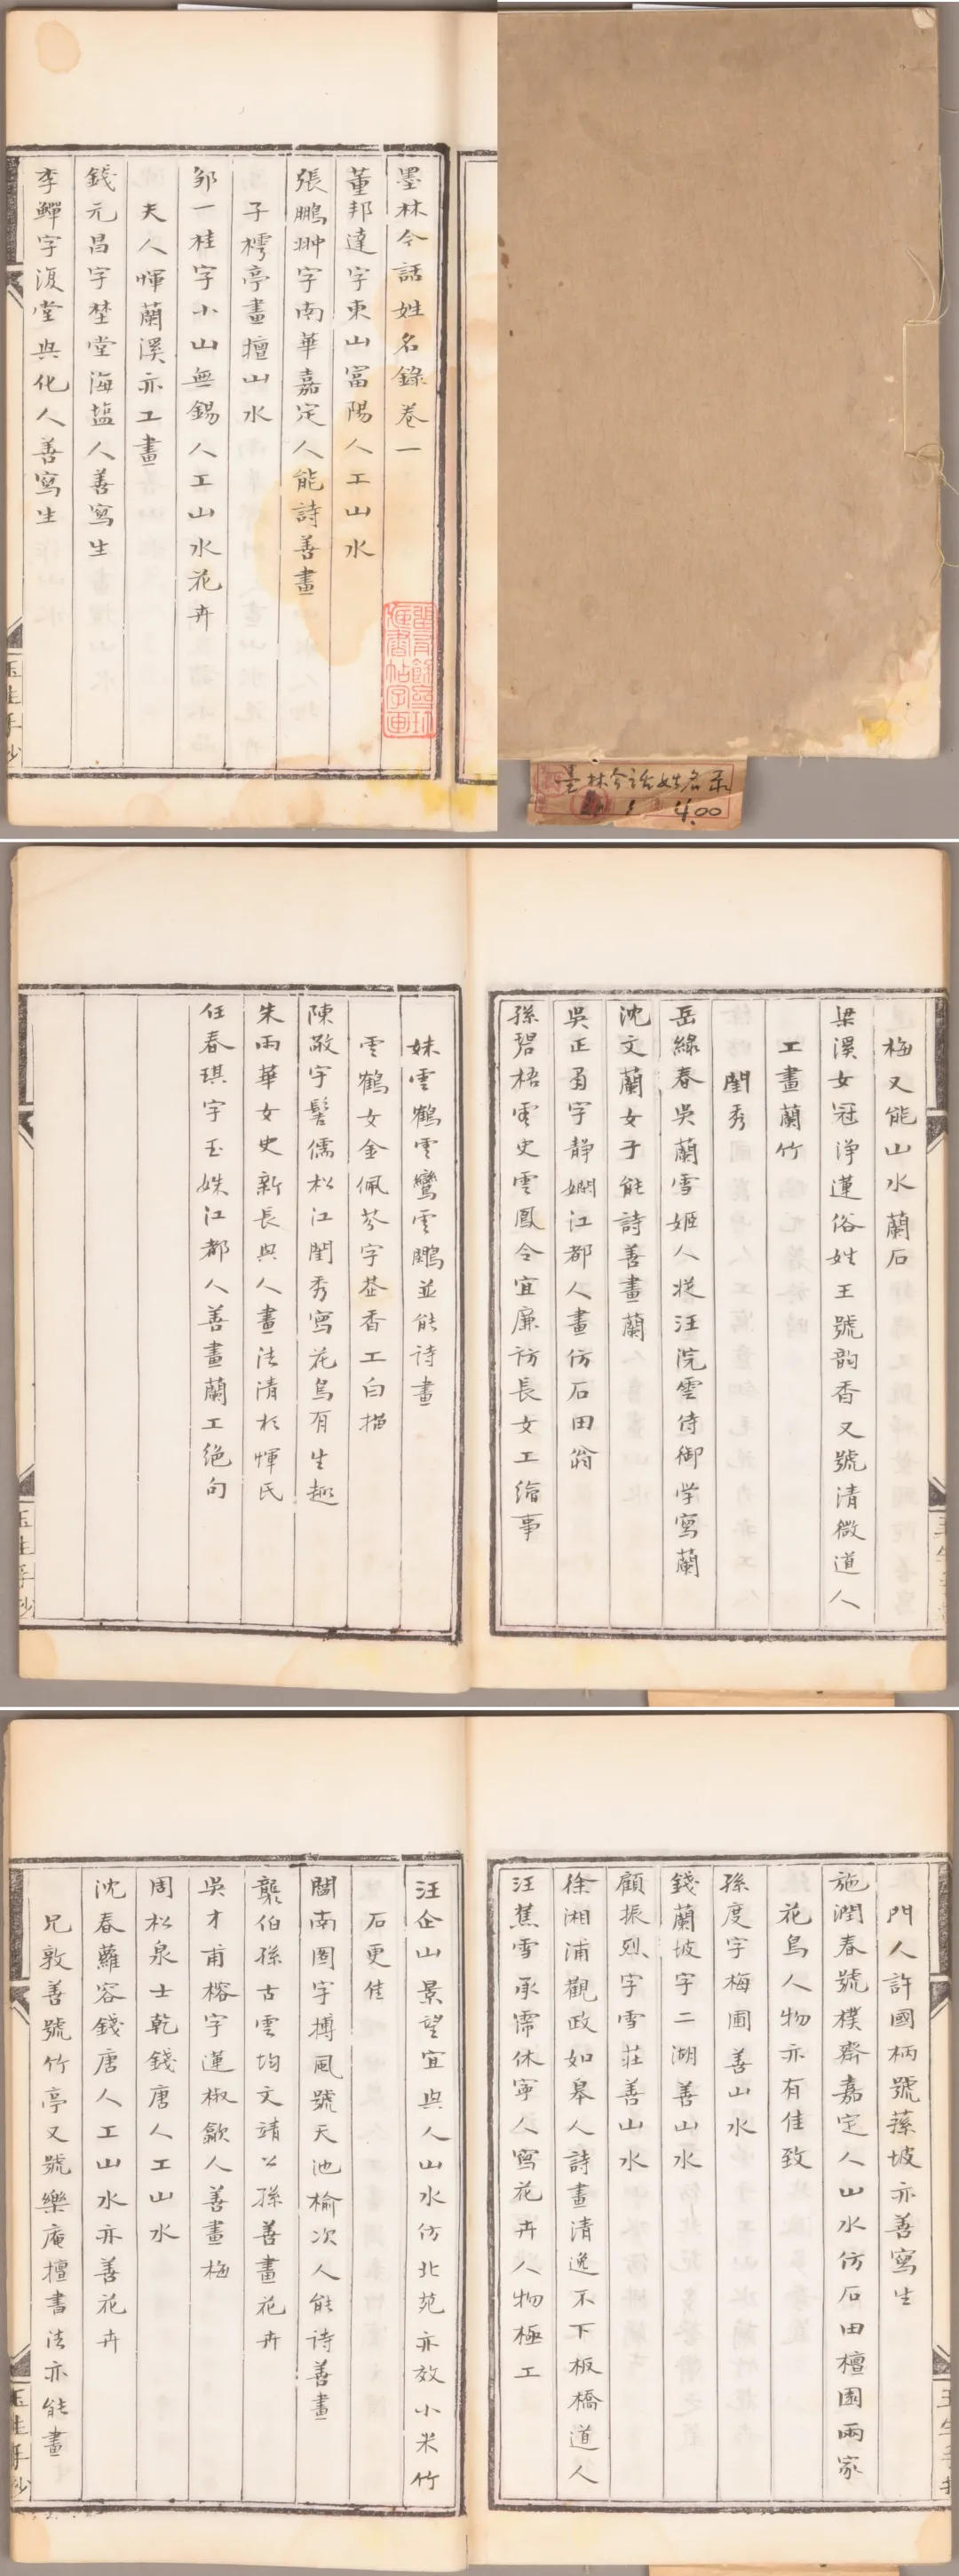 墨林今話姓名錄卷一
董邦達字東山富陽人工山水
張鵬翀字南華嘉定人能詩善畫
子樗亭畫擅山水
邹一桂字小山無錫人工山水花卉
夫人惲蘭溪亦工畫
錢元昌字埜堂海塩人善寫生
李鱓字復堂興化人善寫生
玉生手鈔
墨林今话姓名录
4.00
梅又能山水蘭石
梁溪女冠淨蓮俗姓王號韵香又號清微道人
工畫蘭竹
閨秀
岳綠春吳蘭雪姬人從汪浣雲侍御学寫蘭
沈文蘭女子能詩善畫蘭
吳正肅字靜嫻江都人畫仿石田翁
孫碧梧女史雲鳳令宜廉訪長女工繪事
妹雲鶴雲鸞雲鵬並能詩畫
雲鶴女金佩芬字苤香工白描
陳敬字髻儒松江閨秀寫花鳥有生趣
朱雨華女史新長興人畫法清於惲氏
任春琪字玉姝江都人善畫蘭工絕句
玉生手鈔
門人許國柄號蓀坡亦善寫生
施潤春號樸齋嘉定人山水仿石田檀園兩家
花鳥人物亦有佳致
孫度字梅圃善山水
錢蘭坡字二湖善山水
顧振烈字雪莊善山水
徐湘浦觀政如皋人詩畫清逸不下板橋道人
汪蕉雪承霈休寧人寫花卉人物極工
汪企山景望宜興人山水仿北苑亦放小米竹
石更佳
閻南圖字摶風號天池榆次人能詩善畫
龔伯孫古雲均文靖公孫善畫花卉
吳才甫榕字蓮椒歙人善畫梅
周松泉士乾錢唐人工山水
沈春蘿容錢唐人工山水亦善花卉
兄敦善號竹亭又號樂庵擅書法亦能畫
玉生手鈔